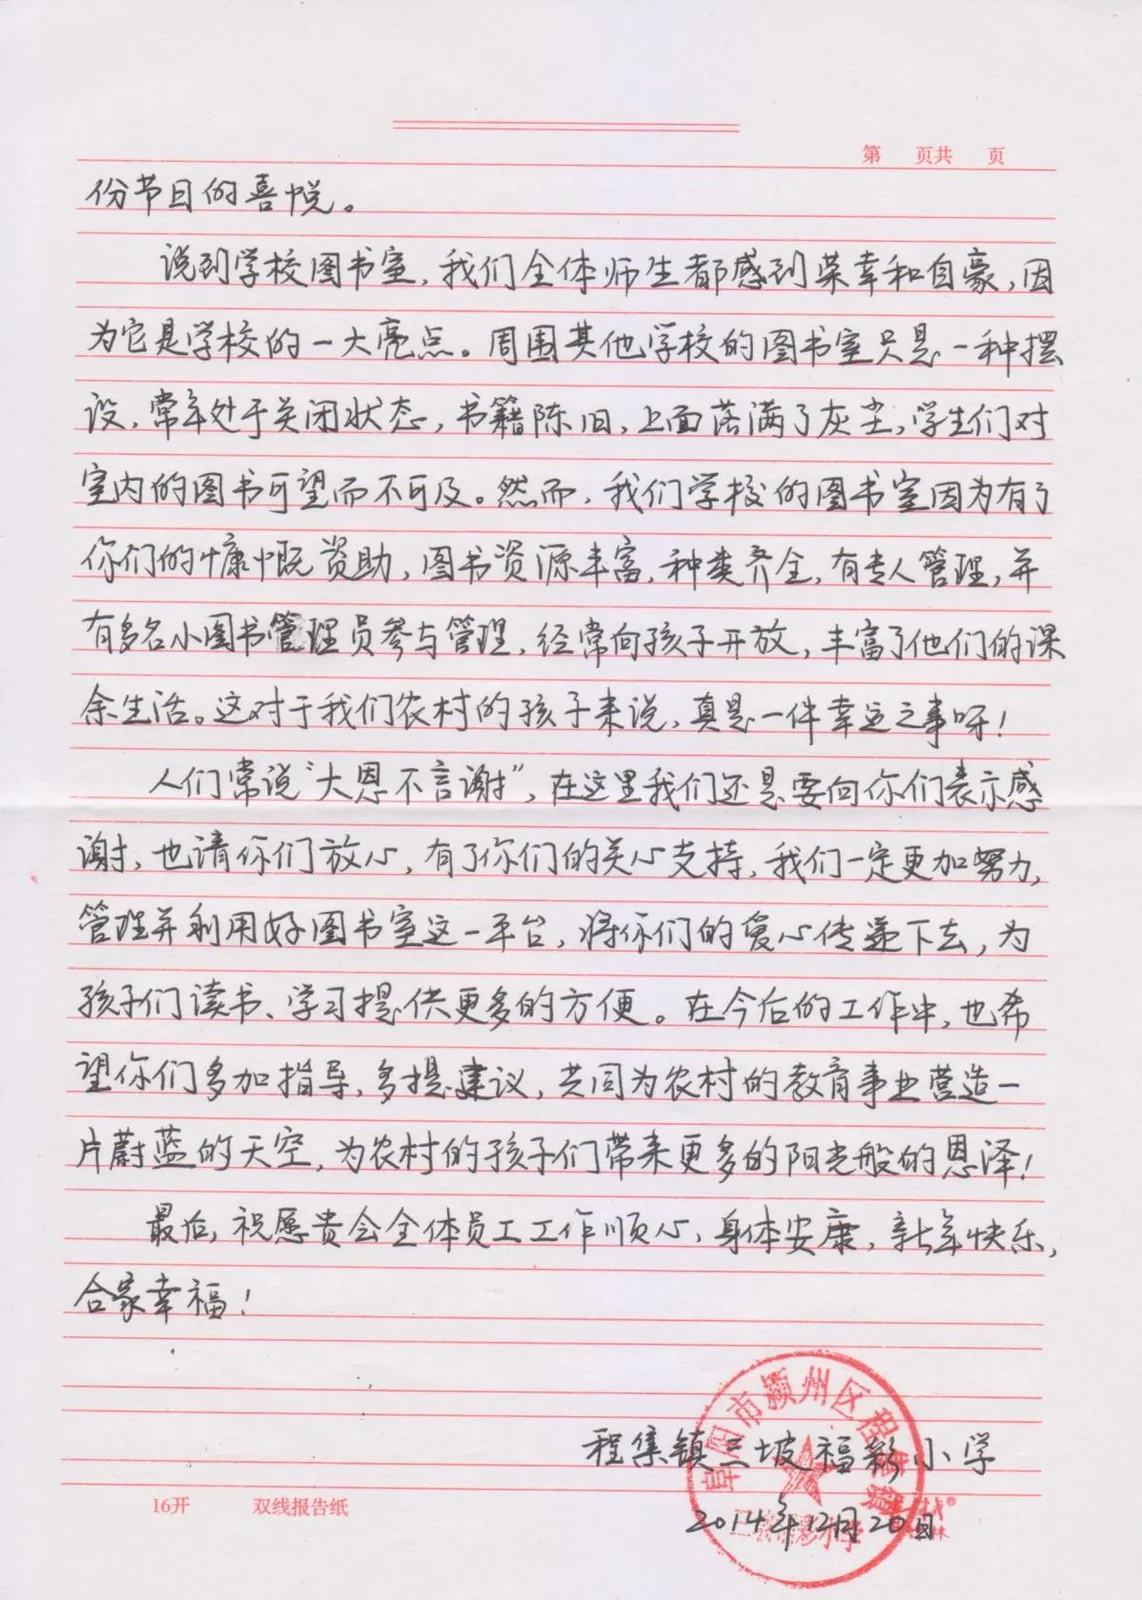 第 页共 页
份节日的喜悦。
说到学校图书室，我们全体师生都感到荣幸和自豪，因
为它是学校的一大亮点。周围其他学校的图书室只是一种摆
设，常年处于关闭状态，书籍陈旧，上面落满了灰尘，学生们对
室内的图书可望而不可及。然而，我们学校的图书室因为有了
你们的慷慨资助，图书资源丰富，种类齐全，有专人管理，并
有多名小图书管理员参与管理，经常向孩子开放，丰富了他们的课
余生活。这对于我们农村的孩子来说，真是一件幸运之事呀！
人们常说“大恩不言谢”，在这里我们还是要向你们表示感
谢，也请你们放心，有了你们的关心支持，我们一定更加努力，
管理并利用好图书室这一平台，将你们的爱心传递下去，为
孩子们读书、学习提供更多的方便。在今后的工作中，也希
望你们多加指导，多提建议，共同为农村的教育事业营造一
片蔚蓝的天空，为农村的孩子们带来更多的阳光般的恩泽！
最后，祝愿贵会全体员工工作顺心，身体安康，新年快乐，
合家幸福！
阜阳市颍州区程集镇
程集镇三坡福彩小学
2014年12月20日
三坡福彩小学
16开 双线报告纸